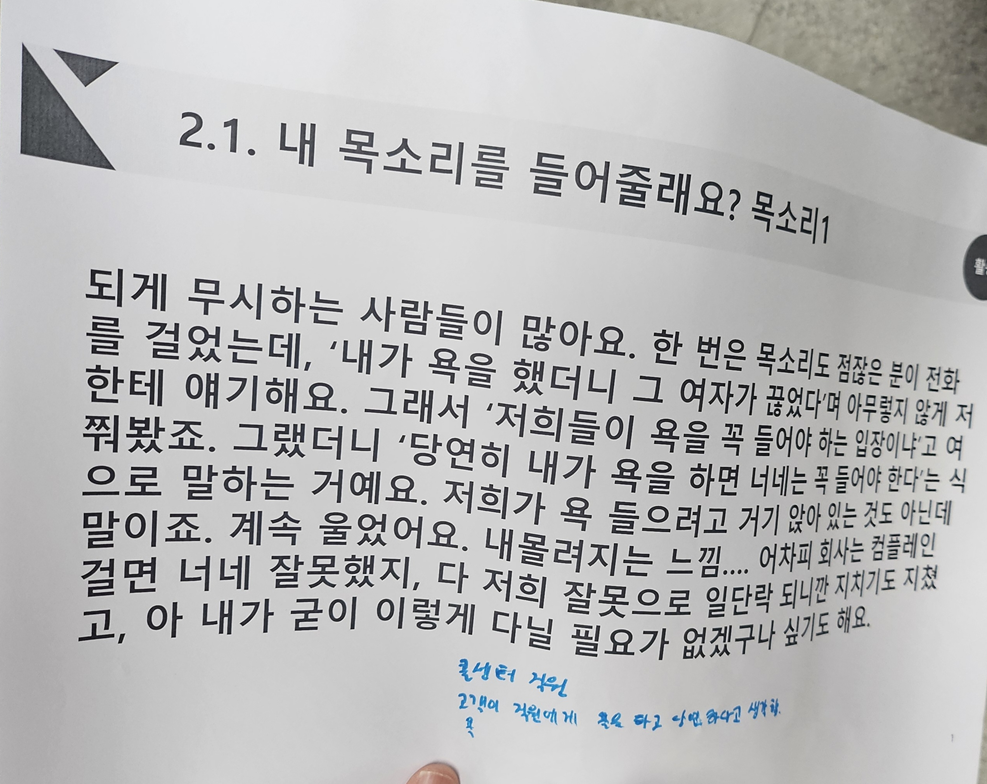 2.1. 내 목소리를 들어줄래요? 목소리1
되게 무시하는 사람들이 많아요. 한 번은 목소리도 점잖은 분이 전화
를 걸었는데, ‘내가 욕을 했더니 그 여자가 끊었다’며 아무렇지 않게 저
한테 얘기해요. 그래서 ‘저희들이 욕을 꼭 들어야 하는 입장이냐’고 여
쭤봤죠. 그랬더니 ‘당연히 내가 욕을 하면 너네는 꼭 들어야 한다’는 식
으로 말하는 거예요. 저희가 욕 들으려고 거기 앉아 있는 것도 아닌데
말이죠. 계속 울었어요. 내몰려지는 느낌.... 어차피 회사는 컴플레인
걸면 너네 잘못했지, 다 저희 잘못으로 일단락 되니깐 지치기도 지쳤
고, 아 내가 굳이 이렇게 다닐 필요가 없겠구나 싶기도 해요.
콜센터 직원
고객이 직원에게 하고 당연하다고 생각함.
욕